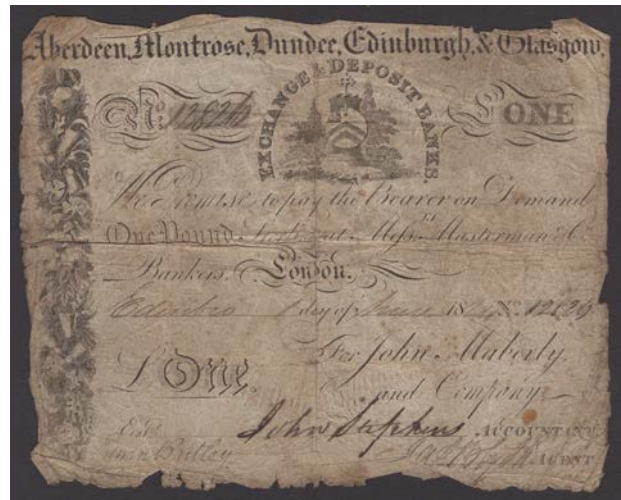 Aberdeen, Montrose, Dundee, Edinburgh, & Glasgow,
EXCHANGE & DEPOSIT BANKS.
No. £ ONE
We Promise to pay the Bearer on Demand
One Pound at Messrs. Masterman & Co.
Bankers, London.
Edinbro 1 day of 18 No.
£ One. For John Maberly
and Company
Entd. John Stephens ACCOUNTANT
AGENT